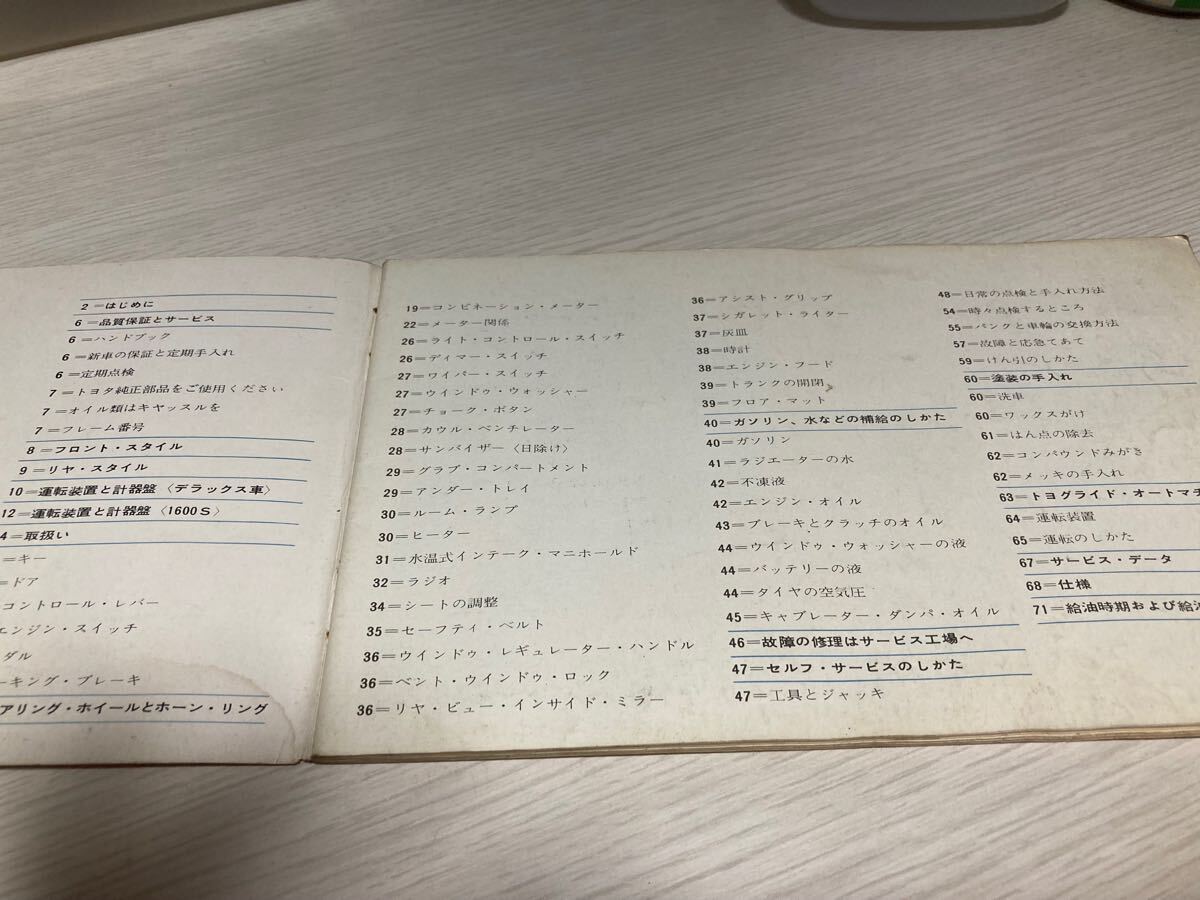 2=はじめに
6=品質保証とサービス
6=ハンドブック
6=新車の保証と定期手入れ
6=定期点検
7=トヨタ純正部品をご使用ください
7=オイル類はキャッスルを
7=フレーム番号
8=フロント・スタイル
9=リヤ・スタイル
10=運転装置と計器盤〈デラックス車〉
12=運転装置と計器盤〈1600S〉
4=取扱い
=キー
=ドア
コントロール・レバー
エンジン・スイッチ
ダル
ーキング・ブレーキ
アリング・ホイールとホーン・リング
19=コンビネーション・メーター
22=メーター関係
26=ライト・コントロール・スイッチ
26=ディマー・スイッチ
27=ワイパー・スイッチ
27=ウインドゥ・ウォッシャー
27=チョーク・ボタン
28=カウル・ベンチレーター
28=サンバイザー〈日除け〉
29=グラブ・コンパートメント
29=アンダー・トレイ
30=ルーム・ランプ
30=ヒーター
31=水温式インテーク・マニホールド
32=ラジオ
34=シートの調整
35=セーフティ・ベルト
36=ウインドゥ・レギュレーター・ハンドル
36=ベント・ウインドゥ・ロック
36=リヤ・ビュー・インサイド・ミラー
36=アシスト・グリップ
37=シガレット・ライター
37=灰皿
38=時計
38=エンジン・フード
39=トランクの開閉
39=フロア・マット
40=ガソリン、水などの補給のしかた
40=ガソリン
41=ラジエーターの水
42=不凍液
42=エンジン・オイル
43=ブレーキとクラッチのオイル
44=ウインドゥ・ウォッシャーの液
44=バッテリーの液
44=タイヤの空気圧
45=キャブレーター・ダンパ・オイル
46=故障の修理はサービス工場へ
47=セルフ・サービスのしかた
47=工具とジャッキ
48=日常の点検と手入れ方法
54=時々点検するところ
55=パンクと車輪の交換方法
57=故障と応急てあて
59=けん引のしかた
60=塗装の手入れ
60=洗車
60=ワックスがけ
61=はん点の除去
62=コンパウンドみがき
62=メッキの手入れ
63=トヨグライド・オートマチ
64=運転装置
65=運転のしかた
67=サービス・データ
68=仕様
71=給油時期および給油